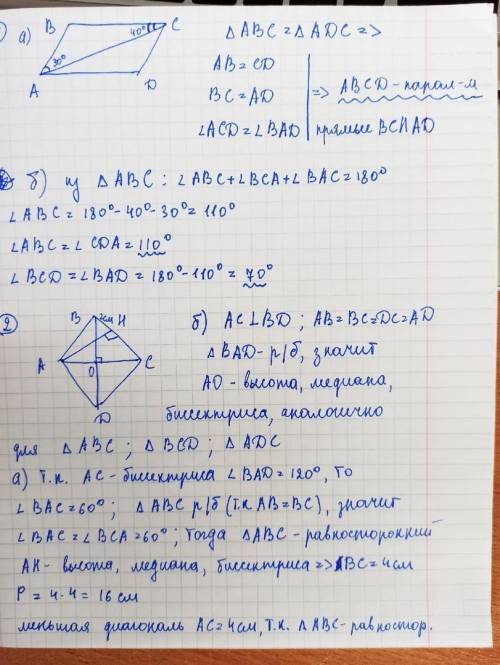 а) B C 40° 30° A D
△ABC = △ADC =>
AB = CD
BC = AD
∠ACD = ∠BAD
=> ABCD - парал-м
прямые BC II AD
б) из △ABC : ∠ABC + ∠BCA + ∠BAC = 180°
∠ABC = 180° - 40° - 30° = 110°
∠ABC = ∠CDA = 110°
∠BCD = ∠BAD = 180° - 110° = 70°
2
B H A O C D
б) AC⊥BD ; AB = BC = DC = AD
△BAD - р/б, значит
AO - высота, медиана,
биссектриса, аналогично
для △ABC ; △BCD ; △ADC
а) т.к. AC - биссектриса ∠BAD = 120°, то
∠BAC = 60° ; △ABC р/б (т.к AB = BC), значит
∠BAC = ∠BCA = 60° ; тогда △ABC - равносторонний
AH - высота, медиана, биссектриса => BC = 4 см
P = 4 · 4 = 16 см
меньшая диагональ AC = 4 см, т.к. △ABC - равностор.